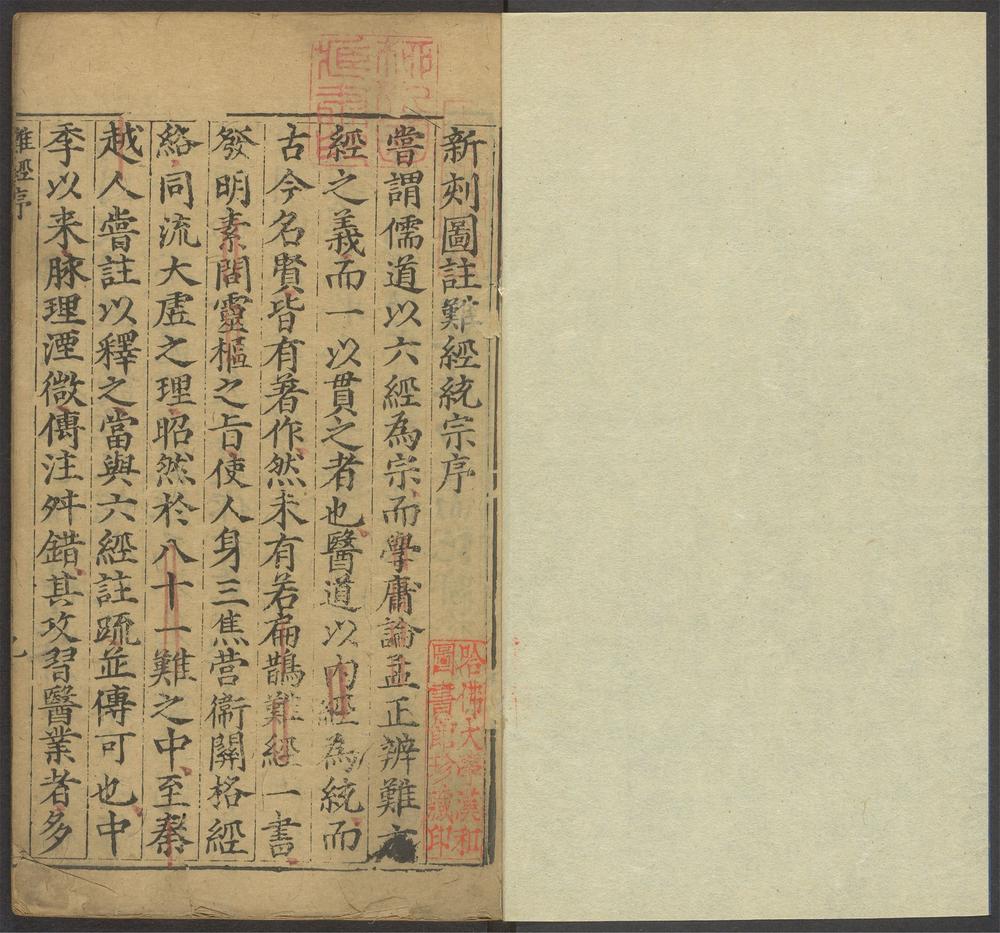 新刻圖註難經統宗序
嘗謂儒道以六經為宗而學庸論孟正辨難六
經之義而一以貫之者也醫道以內經為統而
古今名賢皆有著作然未有若扁鵲難經一書
發明素問靈樞之旨使人身三焦营衛關格經
絡同流大虛之理昭然於八十一難之中至秦
越人嘗註以釋之當與六經註䟽並傳可也中
季以来脉理湮微傳注舛錯其攻習醫業者多
難經序
哈佛大學漢和
圖書館珍藏印